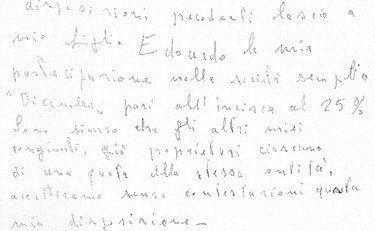 disposizioni precedenti lascio a
mio figlio Edoardo la mia
partecipazione nella società semplice
pari all'incirca al 25%
Sono sicuro che gli altri miei
congiunti, già proprietari ciascuno
di una quota della stessa entità,
accetteranno senza contestazioni questa
mia disposizione_